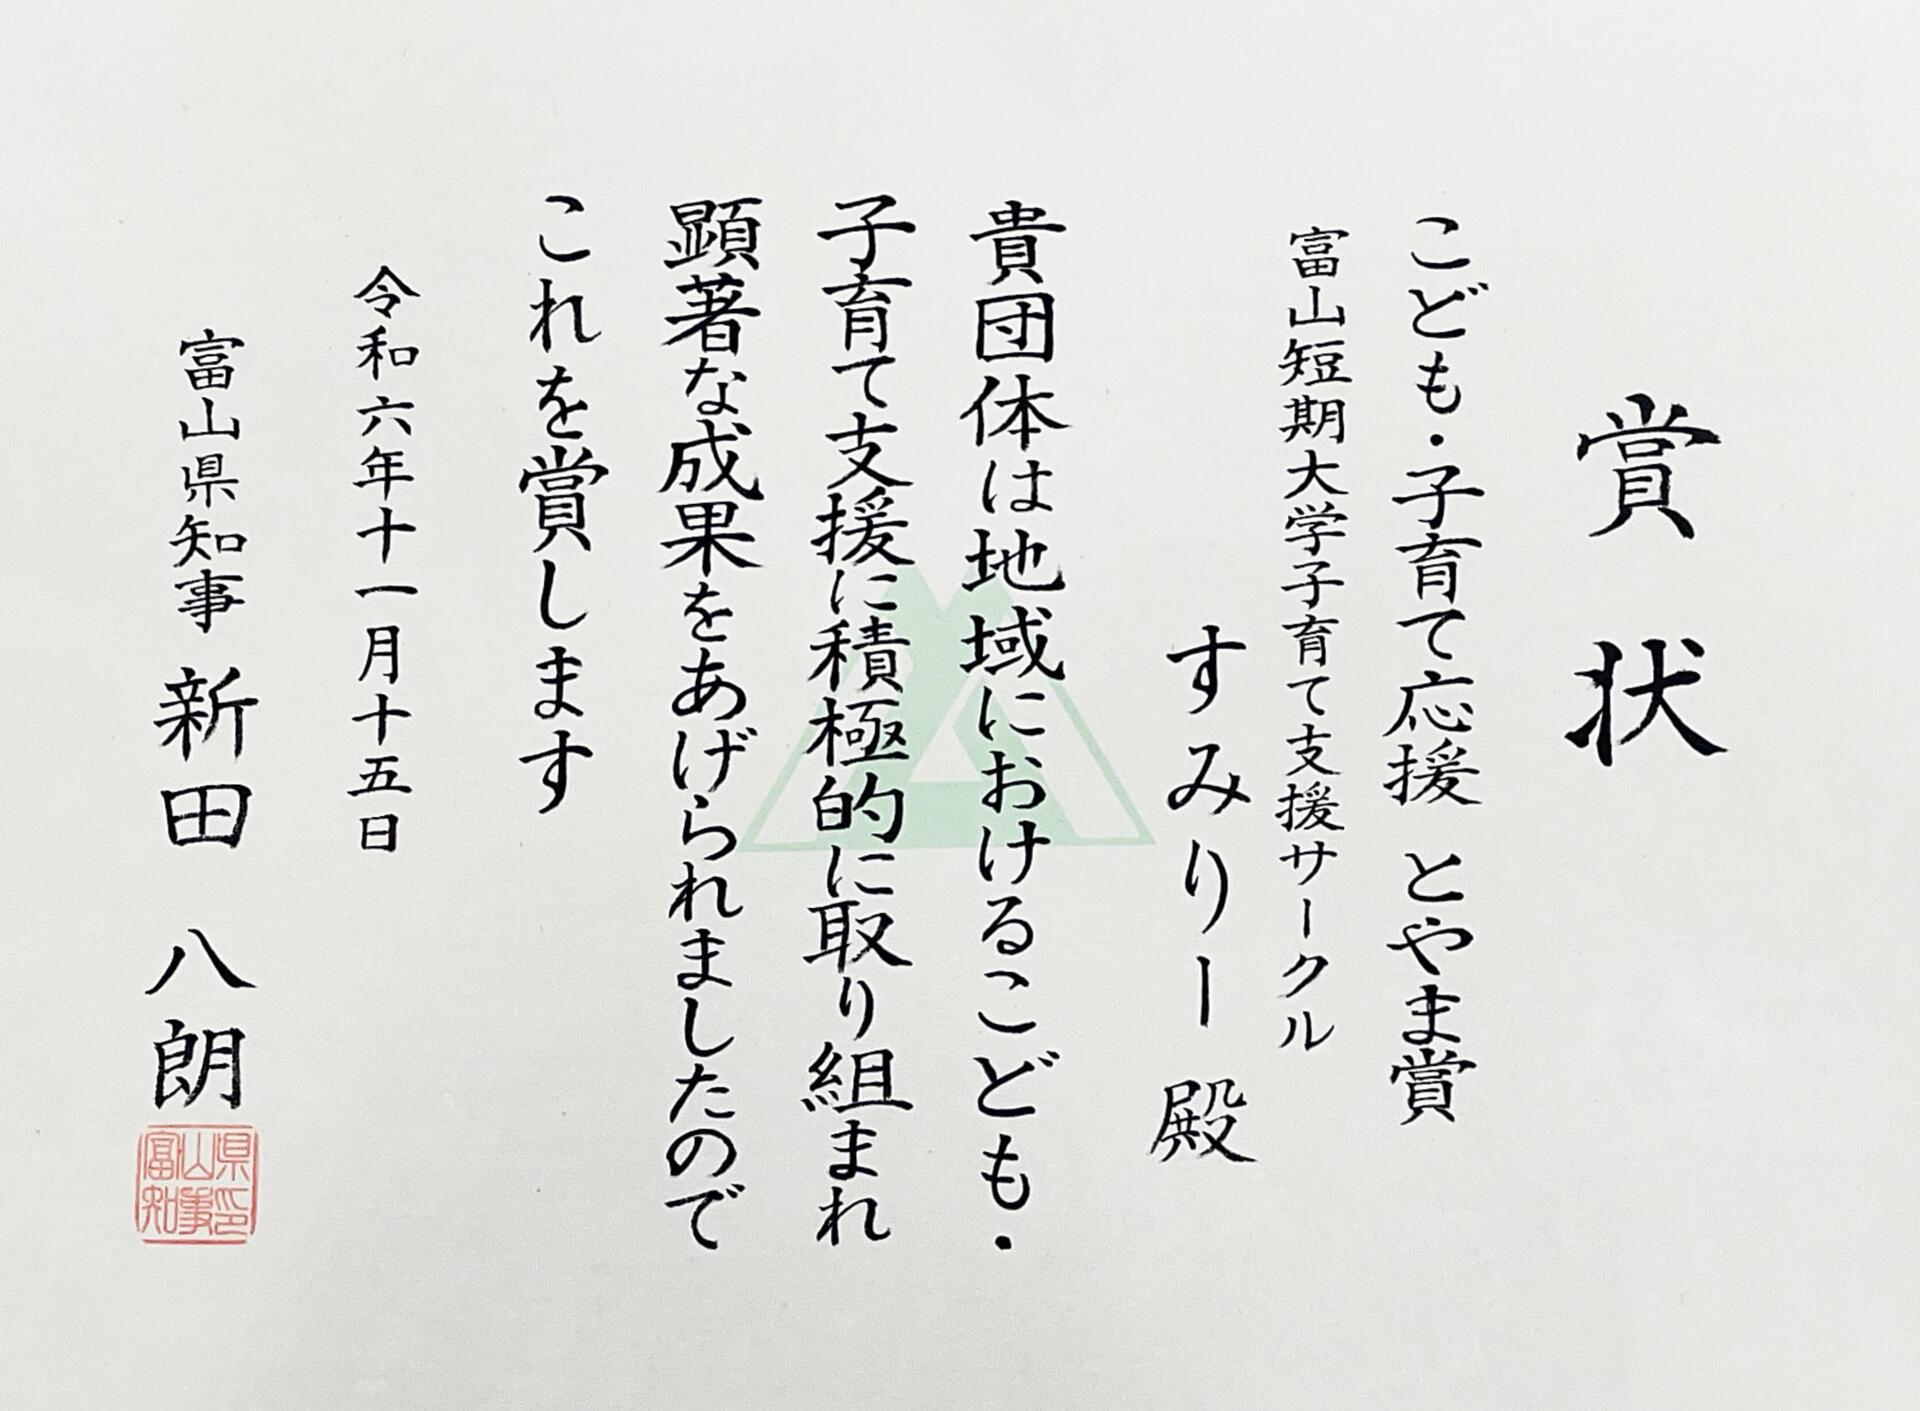 賞状
こども・子育て応援 とやま賞
富山短期大学子育て支援サークル
すみりー 殿
貴団体は地域におけるこども・
子育て支援に積極的に取り組まれ
顕著な成果をあげられましたので
これを賞します
令和六年十一月十五日
富山県知事 新田 八朗
富山県知事印